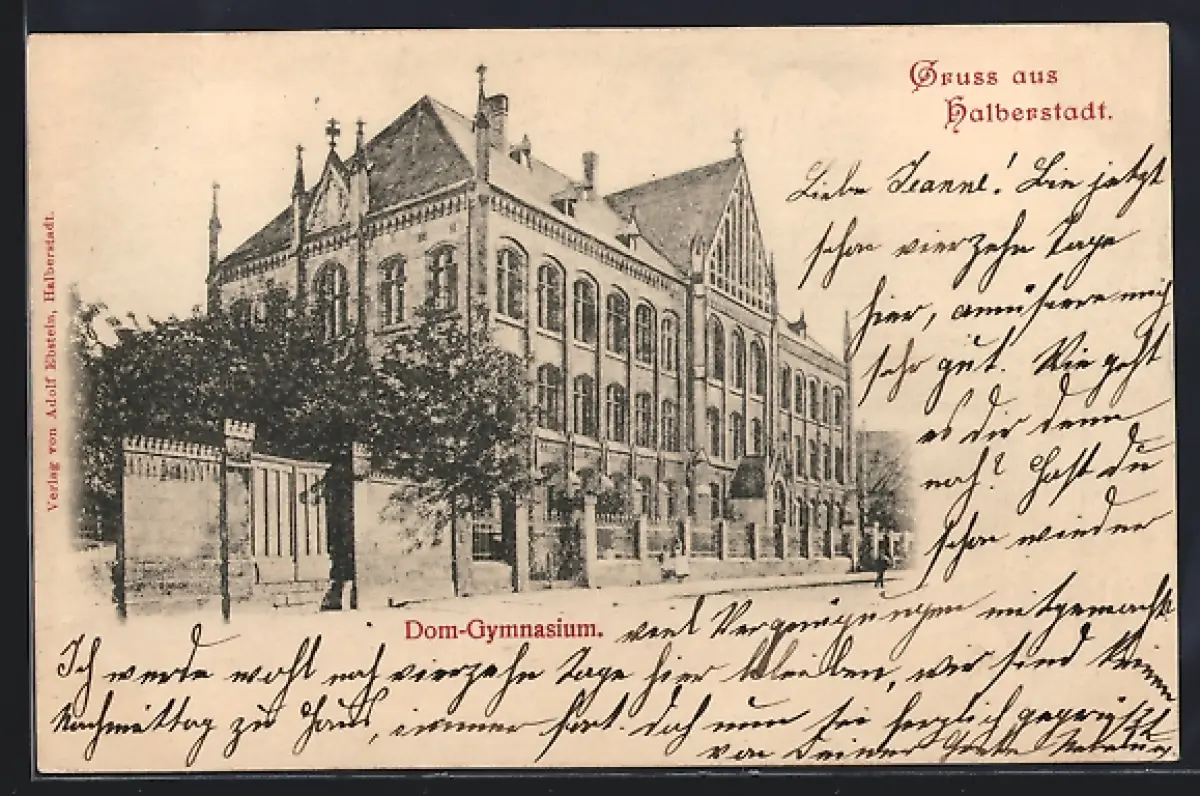 Gruss aus
Halberstadt.
Verlag von Adolf Ebstein, Halberstadt.
Liebe Jeanne! Bin jetzt
schon vierzehn Tage
hier, amüsiere mich
sehr gut. Wie geht
es dir denn
noch? Hast du
schon wieder
Dom-Gymnasium.
viel Vergnügungen mitgemacht.
Ich werde wohl noch vierzehn Tage hier bleiben, wir sind keinen
Nachmittag zu Haus, immer fort. Doch nun sei herzlich gegrüßt
von Deiner